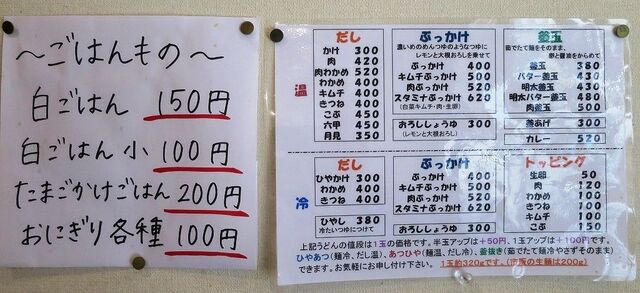 ～ごはんもの～
白ごはん 150円
白ごはん 小 100円
たまごかけごはん 200円
おにぎり各種 100円
温
だし
かけ 300
肉 420
肉わかめ 520
わかめ 400
キムチ 400
きつね 400
こぶ 450
六甲 450
月見 350
ぶっかけ
濃いめのめんつゆのようなつゆに
レモンと大根おろしを乗せて
ぶっかけ 400
キムチぶっかけ 500
肉ぶっかけ 520
スタミナぶっかけ 620
(白菜キムチ・肉・生卵)
おろししょうゆ 300
(レモンと大根おろし)
釜玉
茹でたて麺をそのまま、
卵と醤油をからめて
釜玉 380
バター釜玉 430
明太釜玉 430
明太バター釜玉 480
肉釜玉 500
釜あげ 300
カレー 520
冷
だし
ひやかけ 300
わかめ 400
きつね 400
ひやし 380
冷たいつゆにつけて
ぶっかけ
ぶっかけ 400
キムチぶっかけ 500
肉ぶっかけ 520
スタミナぶっかけ 620
おろししょうゆ 300
(レモンと大根おろし)
トッピング
生卵 50
肉 120
わかめ 100
きつね 100
キムチ 100
こぶ 150
上記うどんの値段は1玉の価格です。半玉アップは+50円、1玉アップは+100円です。
ひやあつ(麺冷、だし温)、あつひや(麺温、だし冷)、釜抜き(茹でたて麺で冷やさずそのまま)
できます。お気軽にお申し付け下さい。 1玉約320gです。(市販の生麺は200g)